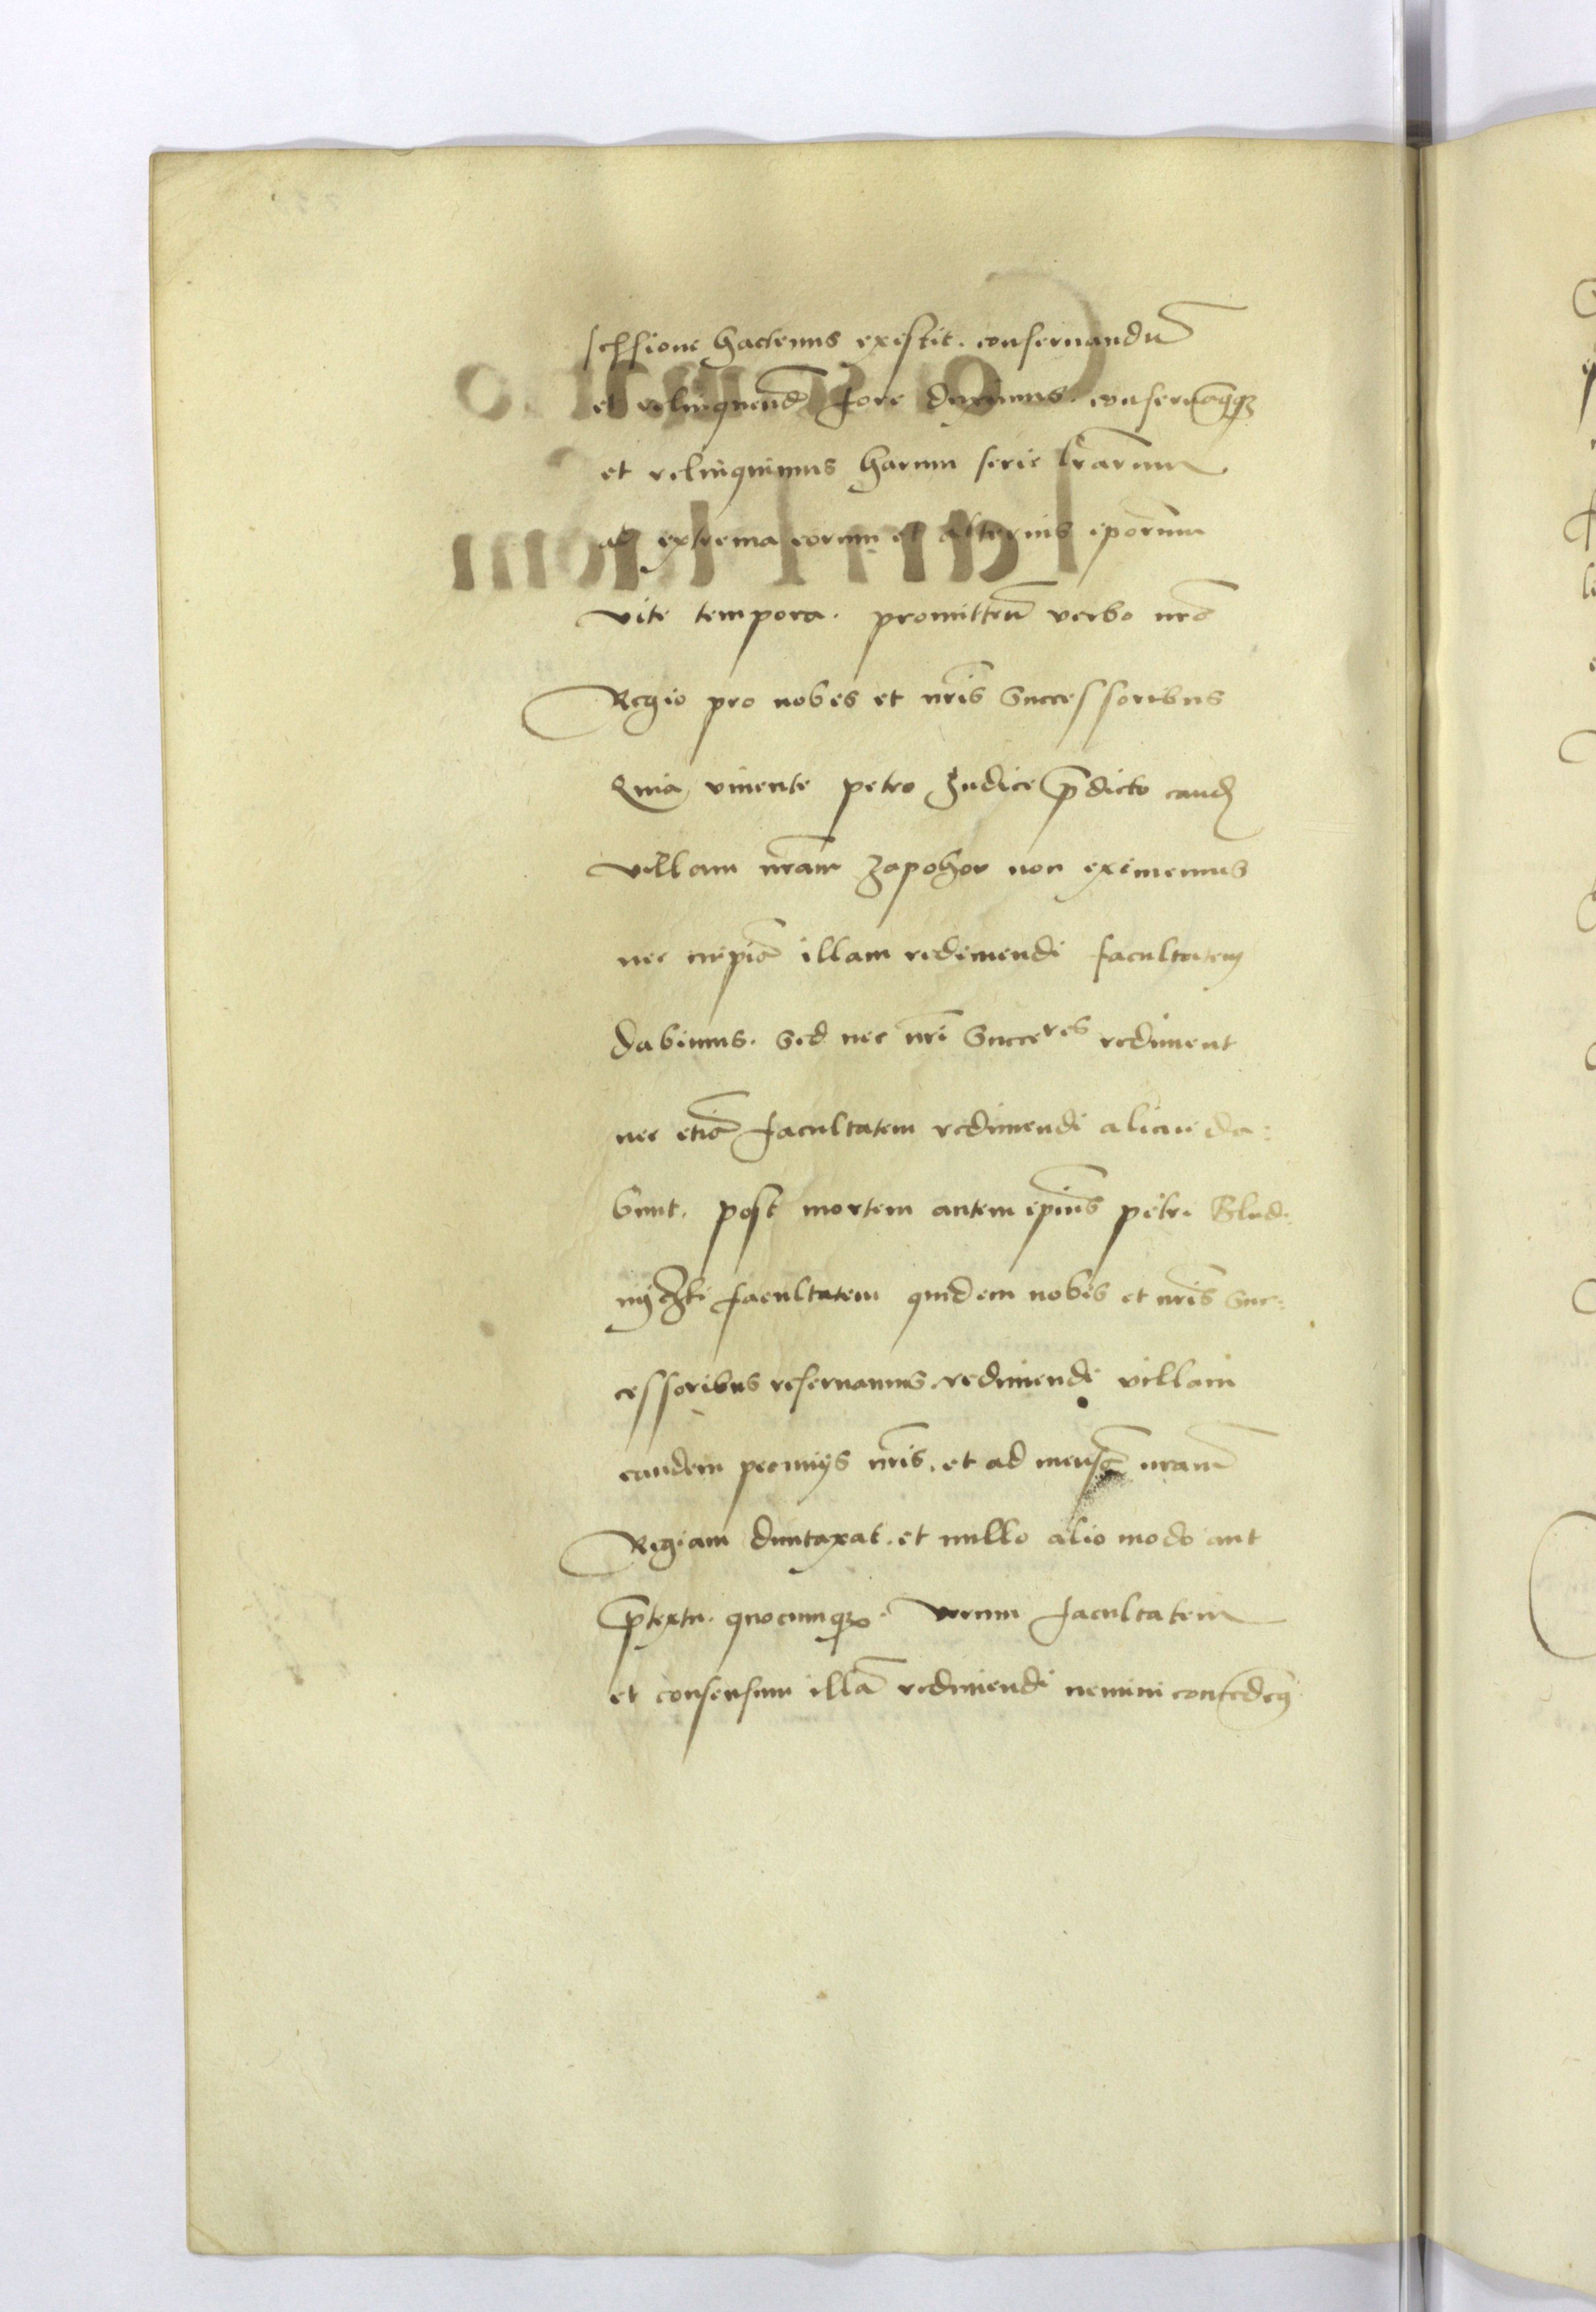 sessione hactenus existit. conservandū
et relinquend fore duximus. conservāqȝ
et relinquimus harum serie lrārum
ad extrema eorum et alterius ip̄orum
vite tempora. promitten̄ verbo nr̄o
Regio pro nobis et nr̄is Successoribus
Quia vivente petro Iudice p̄dicto eand
villam nr̄am Zapohor non eximemus
nec cuipiā illam redimendi facultatem
dabimus. Sed nec nr̄i Succeres rediment
nec etiā facultatem redimendi alicui da:
bunt. post mortem autem ip̄ius petri Blud.
nÿczki facultatem quidem nobis et nr̄is Suc:
cessoribus reservamus redimendi villam
eandem pecunÿs nr̄is. et ad mensā nr̄am
Regiam duntaxat. et nullo alio modo aut
p̄textu. quocumqȝ. verum facultatem
et consensum illā redimendi nemini conced